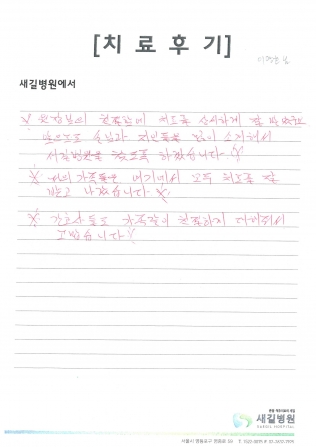 [치 료 후 기]
새길병원에서
※ 원장님의 친절함에 치료를 상세하게 잘 받았으며
앞으로도 손님과 지인들을 많이 소개해서
새길병원을 찾도록 하겠습니다.※
※ 나의 가족들은 여기에서 모두 치료를 잘
받고 나갔습니다.※
※ 간호사들도 가족같이 친절하게 대해줘서
고맙습니다※
새길병원
SAEGIL HOSPITAL
서울시 영등포구